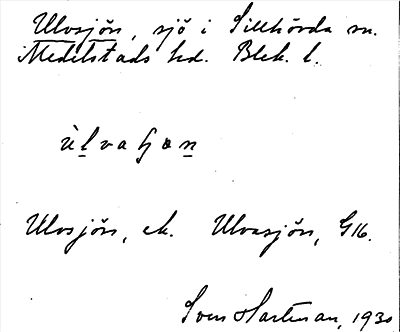 Ulvsjön, sjö i Sillhövda sn.
Medelstads hd. Blek. l.
Ulvsjön, ek. Ulvasjön, G16.
Sven Hartman, 1930